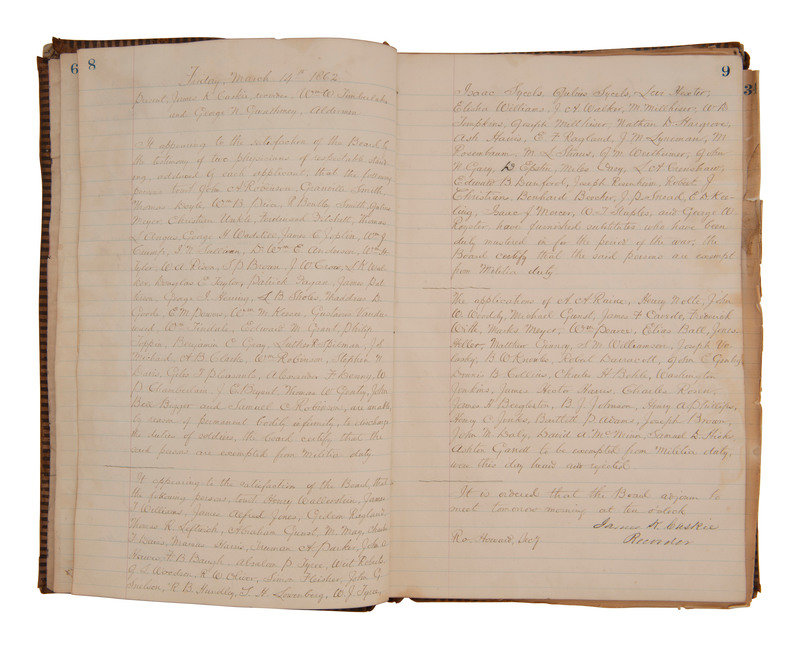 6
8
Friday, March 14th 1862.
Present, James K Caskie, recorder, Wm W Timberlake
and George W Gwathmey, Aldermen
It appearing to the satisfaction of the Board, by
the testimony of two physicians of respectable stand-
ing, adduced by each applicant, that the following
persons, to wit John A Robinson, Granville Smith,
Thomas Boyle, Wm B Price, R Smith, Julius
Meyer, Christian Unkle, Ferdinand Thomas
George H James C Wm J
Crump, J N Dr Wm E Anderson, Wm H
Tyler, W A J P Brown, J W Crow, J K Wal-
ker, Douglas E Taylor, Patrick Fagan, James
George J Herring, S B Stokes, Thaddeus D
Goode, E M Powers, Wm M Gustavus
Wm Edward M Grant, Philip
Benjamin E Gray, Luther R J S
A B Clark, Wm Robinson, Stephen N
Davis, Giles F Pleasants, Alexander F W
P Chamberlain, J E Bryant, Thomas W Gentry, John
Bell Bigger and Samuel C Robinson, are unable
by reason of permanent bodily infirmity, to discharge
the duties of soldiers, the Board certify that the
said persons are exempted from Militia duty
It appearing to the satisfaction of the Board, that
the following persons, to wit Henry Wallerstein, James
T Williams, James Alfred Jones, Gideon Ragland,
Thomas R Leftwich, Abraham Gunst, M. May, Charles
T Marcus Harris, Truman A Parker, John A
H B Baugh, P Tyree, Will
G L Woodson, R W Oliver, Simon John G
Snelson, R B Hundley, T H Lowenberg, W J Tyree,
9
3
Isaac Sycels, Julius Sycels, Levi Hexter,
Elisha Williams, J H Walker, M Millhiser, W D
Tompkins, Joseph Millhiser, Nathan D Hargrove,
Ash Harris, E F Ragland, J M Lyneman, M
Rosenbaum, M L Straus, G M Wertheimer, John
H Gary, D Epstin, Miles Cary, L A Crenshaw,
Edward B Joseph Rosenham, Robert J
Christians, Bernhard Boecker, J P Smead, E B Kee-
ling, Isaac J Mercer, W T Staples, and George W
Royster, have furnished substitutes who have been
duly mustered in for the period of the war, the
Board certify that the said persons are exempt
from Militia duty
The applications of A A Raine, Henry Nolte, John
W Wembly, Michael Gunst, James F Frederick
With, Marks Meyer, Wm Pearce, Elias Ball, Jonas
Heller, Matthew Tierney, S M Williamson, Joseph
B W Knowles, Robert John E Gentry
Dennis B Collins, Charles H Bohle, Washington
Jenkins, James Hector Harris, Charles Rosen,
James H B. J. Johnson, Henry A Phillips,
Henry C Jones, Bartlett P Adams, Joseph Brown,
John M Daly, David A McNeill, Samuel D Hicks,
Ashton Garrett to be exempted from Militia duty,
were this day heard and rejected
It is ordered that the Board adjourn to
meet tomorrow morning at ten o'clock
James K Caskie
Ro. Howard, Secy Recorder